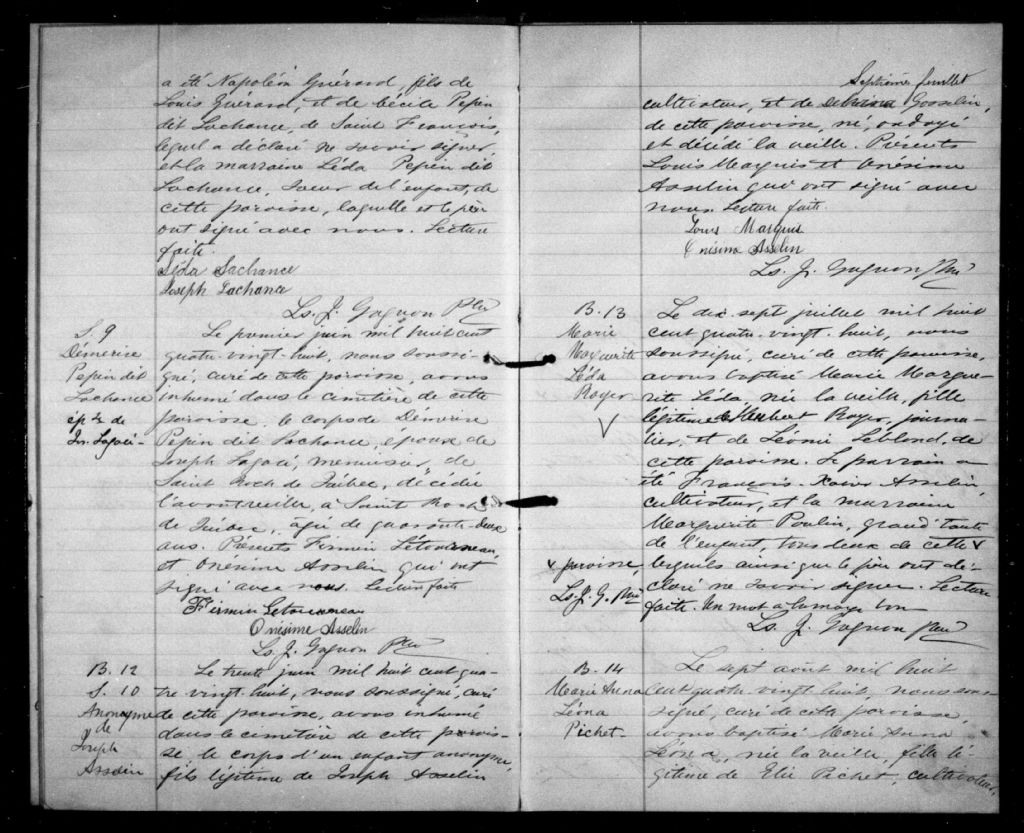 a été Napoléon Guérard, fils de
Louis Guérard, et de Cécile Pepin
dit Lachance, de Saint François,
lequel a déclaré ne savoir signer
et la marraine Léda Pepin dit
Lachance, soeur de l'enfant, de
cette paroisse, laquelle et le père
ont signé avec nous. Lecture
faite.
Léda Lachance
Joseph Lachance
Ls. J. Gagnon Ptre
S. 9
Démerise
Pepin dit
Lachance
ép. de
Jos. Lagacé
Le premier juin mil huit cent
quatre-vingt-huit, nous soussi-
gné, curé de cette paroisse, avons
inhumé dans le cimetière de cette
paroisse, le corps de Démerise
Pepin dit Lachance, épouse de
Joseph Lagacé, menuisier, de
Saint Roch de Québec, décédée
l'avant veille, à Saint Roch
de Québec, agée de quarante-deux
ans. Présents Firmin Létourneau,
et Onésime Asselin qui ont
signé avec nous. Lecture faite
Firmin Letourneau
Onésime Asselin
Ls. J. Gagnon Ptre
B. 12
S. 10
Anonyme
de
Joseph
Asselin
Le trente juin mil huit cent qua-
tre vingt-huit, nous soussigné, curé
de cette paroisse, avons inhumé
dans le cimetière de cette parois-
se le corps d'un enfant anonyme,
fils légitime de Joseph Asselin
Septième feuillet
cultivateur, et de Gosselin,
de cette paroisse, né, ondoyé
et décédé la veille. Présents
Louis Marquis et Onésime
Asselin qui ont signé avec
nous. Lecture faite.
Louis Marquis
Onésime Asselin
Ls. J. Gagnon Ptre
B. 13
Marie
Marguerite
Léda
Royer
Le dix-sept juillet mil huit
cent quatre-vingt-huit, nous
soussigné, curé de cette paroisse,
avons baptisé Marie Margue-
rite Léda, née la veille, fille
légitime de Hubert Royer, journa-
lier, et de Léonie Leblond, de
cette paroisse. Le parrain a
été François-Xavier Asselin,
cultivateur, et la marraine
Marguerite Poulin, grand'tante
de l'enfant, tous deux de cette v
v paroisse,
Ls. J. G. Ptre
lesquels ainsi que le père ont dé-
claré ne savoir signer. Lecture
faite. Un mot à la marge bon
Ls. J. Gagnon Ptre
B. 14
Marie Anna
Léona
Pichet
Le sept août mil huit
cent quatre vingt huit, nous sous-
signé, curé de cette paroisse,
avons baptisé Marie Anna
Léona, née la veille, fille lé-
gitime de Elie Pichet, cultivateur,